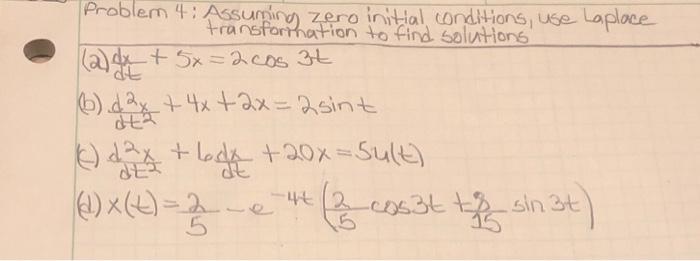 Problem 4: Assuming zero initial conditions, use Laplace
transformation to find solutions
(a) dx/dt + 5x = 2 cos 3t
(b) d²x/dt² + 4x + 2x = 2 sin t
(c) d²x/dt² + 6 dx/dt + 20x = 5u(t)
(d) x(t) = 2/5 - e^-4t (2/5 cos 3t + 8/15 sin 3t)